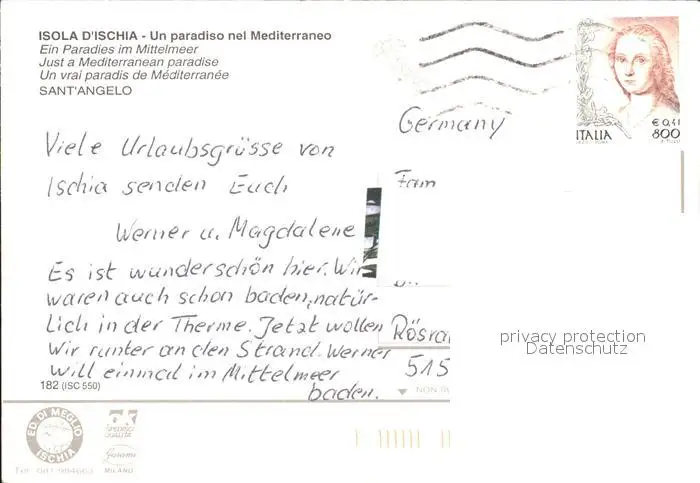 ISOLA D'ISCHIA - Un paradiso nel Mediterraneo
Ein Paradies im Mittelmeer
Just a Mediterranean paradise
Un vrai paradis de Méditerranée
SANT'ANGELO
ITALIA
€ 0,41
800
Germany
Fam
Viele Urlaubsgrüsse von
Ischia senden Euch
Werner u. Magdalene
Es ist wunderschön hier. Wir
waren auch schon baden, natür-
lich in der Therme. Jetzt wollen
wir runter an den Strand. Werner
will einmal im Mittelmeer
baden.
Rösra
515
privacy protection
Datenschutz
182 (ISC 550)
ED. DI MEGLIO
ISCHIA
MILANO